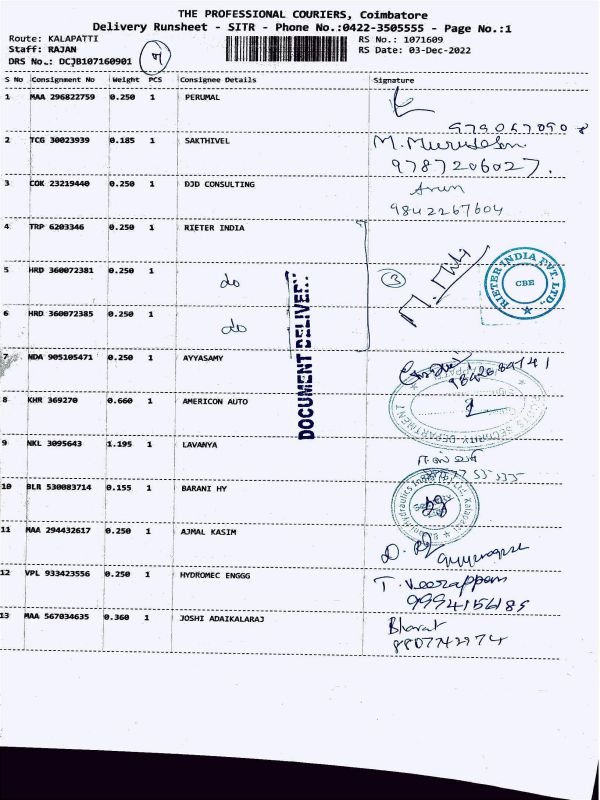 THE PROFESSIONAL COURIERS, Coimbatore
Delivery Runsheet - SITR - Phone No.:0422-3505555 - Page No.:1
Route: KALAPATTI
RS No.: 1071609
Staff: RAJAN
RS Date: 03-Dec-2022
DRS No.: DCJB107160901
S No Consignment No Weight PCS Consignee Details Signature
1 MAA 296822759 0.250 1 PERUMAL
2 TCG 30023939 0.185 1 SAKTHIVEL M. Murugesan
9787206027.
3 COK 23219440 0.250 1 DJD CONSULTING Arun
9842267604
4 TRP 6203346 0.250 1 RIETER INDIA
5 HRD 360072381 0.250 1 do
3
RIETER INDIA PVT. LTD.
CBE
6 HRD 360072385 0.250 1 do
DOCUMENT DELIVERY
7 NDA 905105471 0.250 1 AYYASAMY
8 KHR 369270 0.660 1 AMERICON AUTO
SECURITY DEPARTMENT
9 NKL 3095643 1.195 1 LAVANYA
10 BLR 530083714 0.155 1 BARANI HY
11 MAA 294432617 0.250 1 AJMAL KASIM
12 VPL 933423556 0.250 1 HYDROMEC ENGGG T. Veerappan
9994156185
13 MAA 567034635 0.360 1 JOSHI ADAIKALARAJ Bharat
8807742974